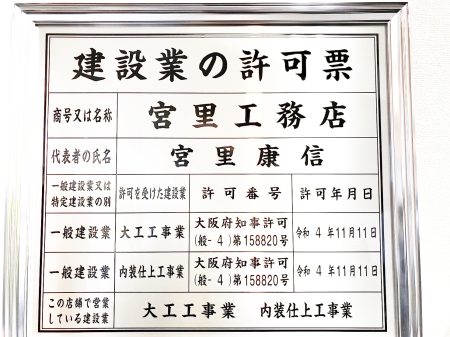 建設業の許可票
商号又は名称 宮里工務店
代表者の氏名 宮里康信
一般建設業又は
特定建設業の別
許可を受けた建設業 許可番号 許可年月日
一般建設業 大工工事業
大阪府知事許可
(般-4)第158820号
令和 4 年11月11日
一般建設業 内装仕上工事業
大阪府知事許可
(般-4)第158820号
令和 4 年11月11日
この店舗で営業
している建設業
大工工事業 内装仕上工事業